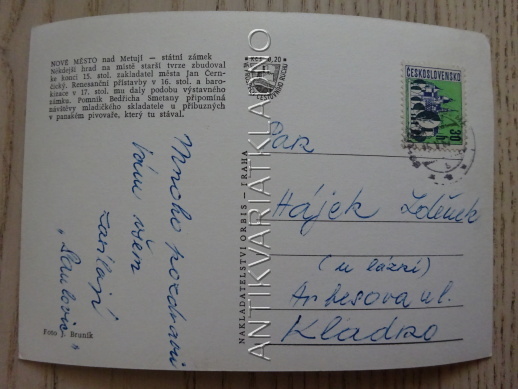 NOVÉ MĚSTO nad Metují — státní zámek
Někdejší hrad na místě starší tvrze zbudoval
ke konci 15. stol. zakladatel města Jan Černčický. Renesanční přístavby v 16. stol. a barokizace v 17. stol. mu daly podobu výstavného
zámku. Pomník Bedřicha Smetany připomíná
návštěvy mladičkého skladatele u příbuzných
v panském pivovaře, který tu stával.
Mnoho pozdravů
Vám všem
zasílají
Foto J. Bruník
NAKLADATELSTVÍ ORBIS — PRAHA
ANTIKVARIATKLADNO
Kčs 0,20
ČESKOSLOVENSKO
30 h
Pan
Hájek Zdeněk
(u lázní)
Arbesova ul.
Kladno